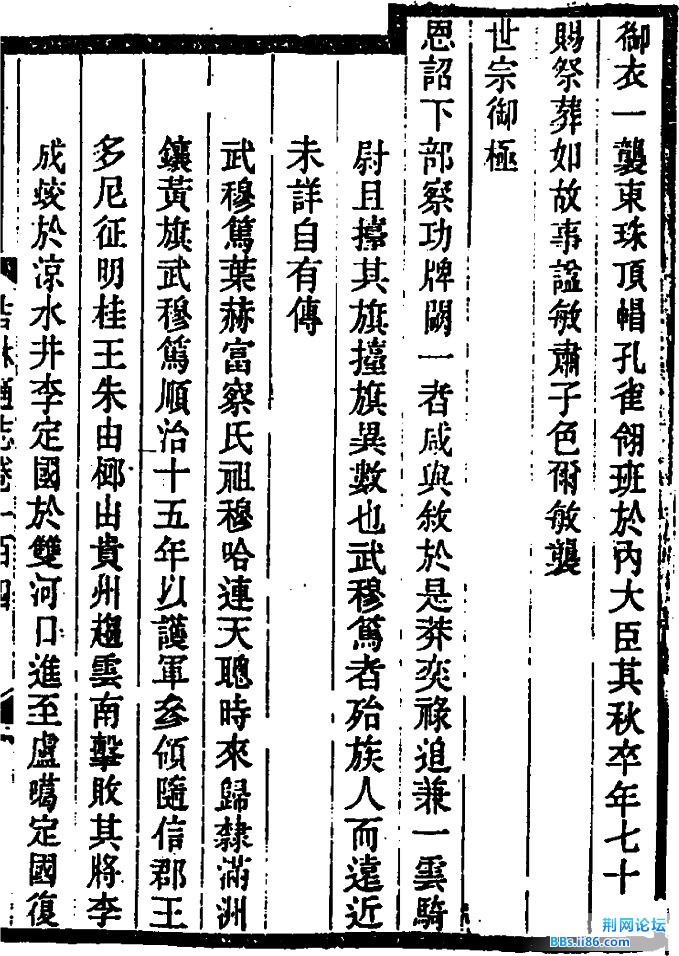 御衣一襲東珠頂帽孔雀翎班於內大臣其秋卒年七十
賜祭葬如故事諡敏肅子色爾敏襲
世宗御極
恩詔下部察功牌闕一者咸與敘於是莽奕祿追兼一雲騎
尉且擡其旗擡旗異數也武穆篤者殆族人而遠近
未詳自有傳
武穆篤葉赫富察氏祖穆哈連天聰時來歸隸滿洲
鑲黃旗武穆篤順治十五年以護軍參領隨信郡王
多尼征明桂王朱由榔由貴州趨雲南擊敗其將李
成蛟於涼水井李定國於雙河口進至盧噶定國復
吉林通志卷一百四
荆网论坛
BBs.ii86.com